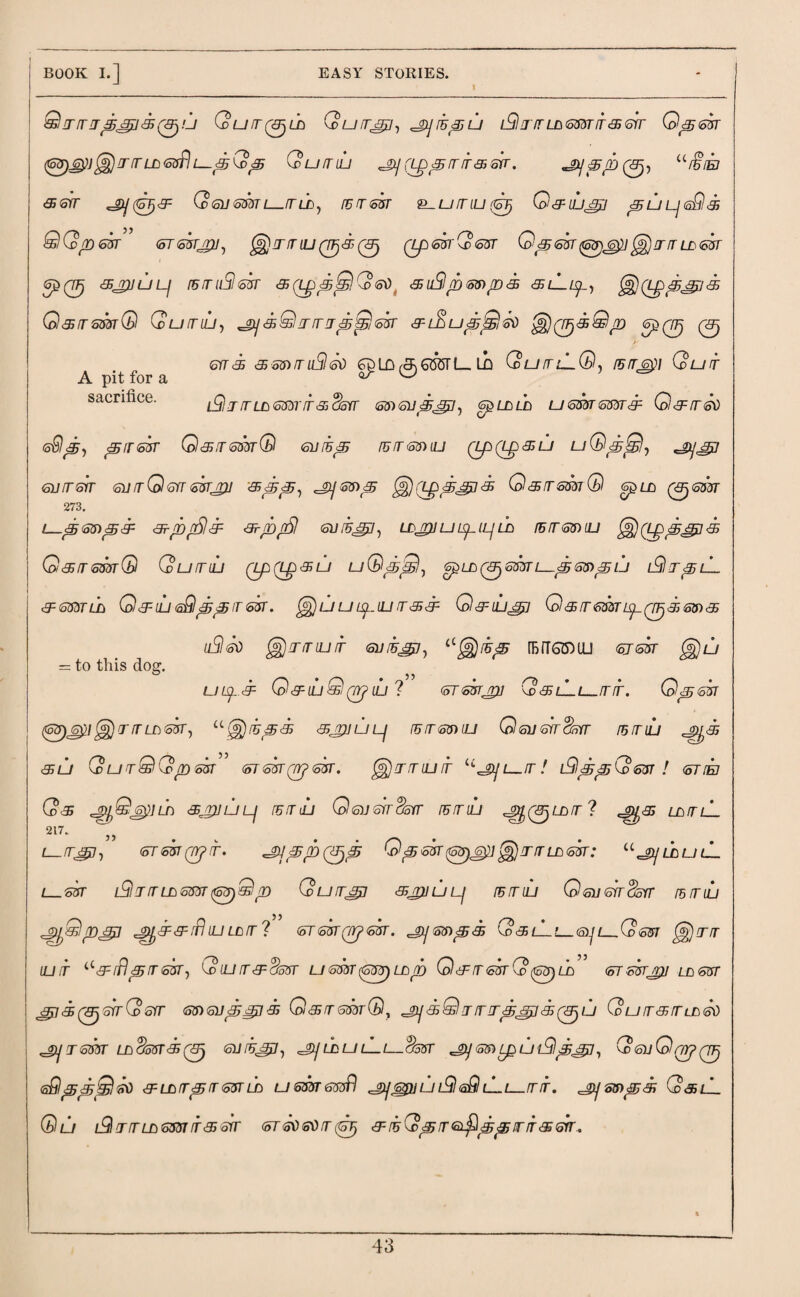 BOOK I.] EASY STORIES.
கிராரத்துக்குப் போகும் போது, அந்தப் பிராமணர்கள் தென்
னாலுஇராமனிடத்தே போய் அழுதார்கள். அதற்கு, “நீங்
கள் அஞ்ச வேண்டாம், நான் உபாயஞ் செய்து தப்புவிக்
கிறேன்” என்று, இராயருக்கு முன்னே தென்னாலுஇராமன்
ஒரு கறுப்பு நாயின் கழுத்திலே, கயிற்றைக் கட்டி, இழுத்துக்
கொண்டு போய், அக்கிராரத்தின் சமீபத்தில் இருக்கிற ஒரு கு
ளக் கரையில் ஓமகுண்டம் போட்டு, நாலு பேர்
A pit for a
sacrifice.
பிராமணர்களை வைத்து, ஓமம் பண்ணச் சொல்
வித், தான் கொண்டு வந்த நாயை முழுகப் படுத்தி, அது
வாள் வாளென்று கத்த, அதை இழுத்துக் கொண்டு ஓம குண்
273.
டத்தைச் சுற்றிச் சுற்றி வந்து, மறுபடியும் நாயை இழுத்துக்
கொண்டு போய் முழுகப் படுத்தி, ஓமகுண்டத்தைப் பிரதட்
சணம் செய்வித்தான். இப்படியாகச் செய்து கொண்டிருக்கை
யில் இராயர் வந்து, “இந்த நாயை ஏன் இப்
= to this dog.
படிச் செய்கிறாய்?” என்று கேட்டார். தென்
னாலுஇராமன், “இந்தக் கறுப்பு நாயை வெள்ளை நாய் ஆக்
கப் போகிறேன்” என்றான். இராயர் “அடா! பித்தனே! எங்
கே ஆகிலும் கறுப்பு நாய் வெள்ளை நாய் ஆகுமா? ஆக மாட்
217.
டாது,” என்றார். அதற்குத் தென்னாலுஇராமன்: “அம்பட்
டன் பிராமணனாகிற போது கறுப்பு நாய் வெள்ளை நாய்
ஆகிறது ஆச்சரியமா?” என்றான். அதைக் கேட்டவுடனே இரா
யர் “சரிதான், யோசனை பண்ணாமற் சொன்னோம்” என்று மன
துக்குளேளே வைத்துக் கொண்டு, அக்கிராரத்துக்குப் போகாமல்
அரண் மனைக்கு வந்து, அம்பட்டனை அழைப்பித்து, வேறொரு
விதத்தில் சமாதானம் பண்ணி அனுப்பிவிட்டார். அதைக் கேட்
டுப் பிராமணர்கள் எல்லாஞ் சந்தோஷித்தார்கள்.
43